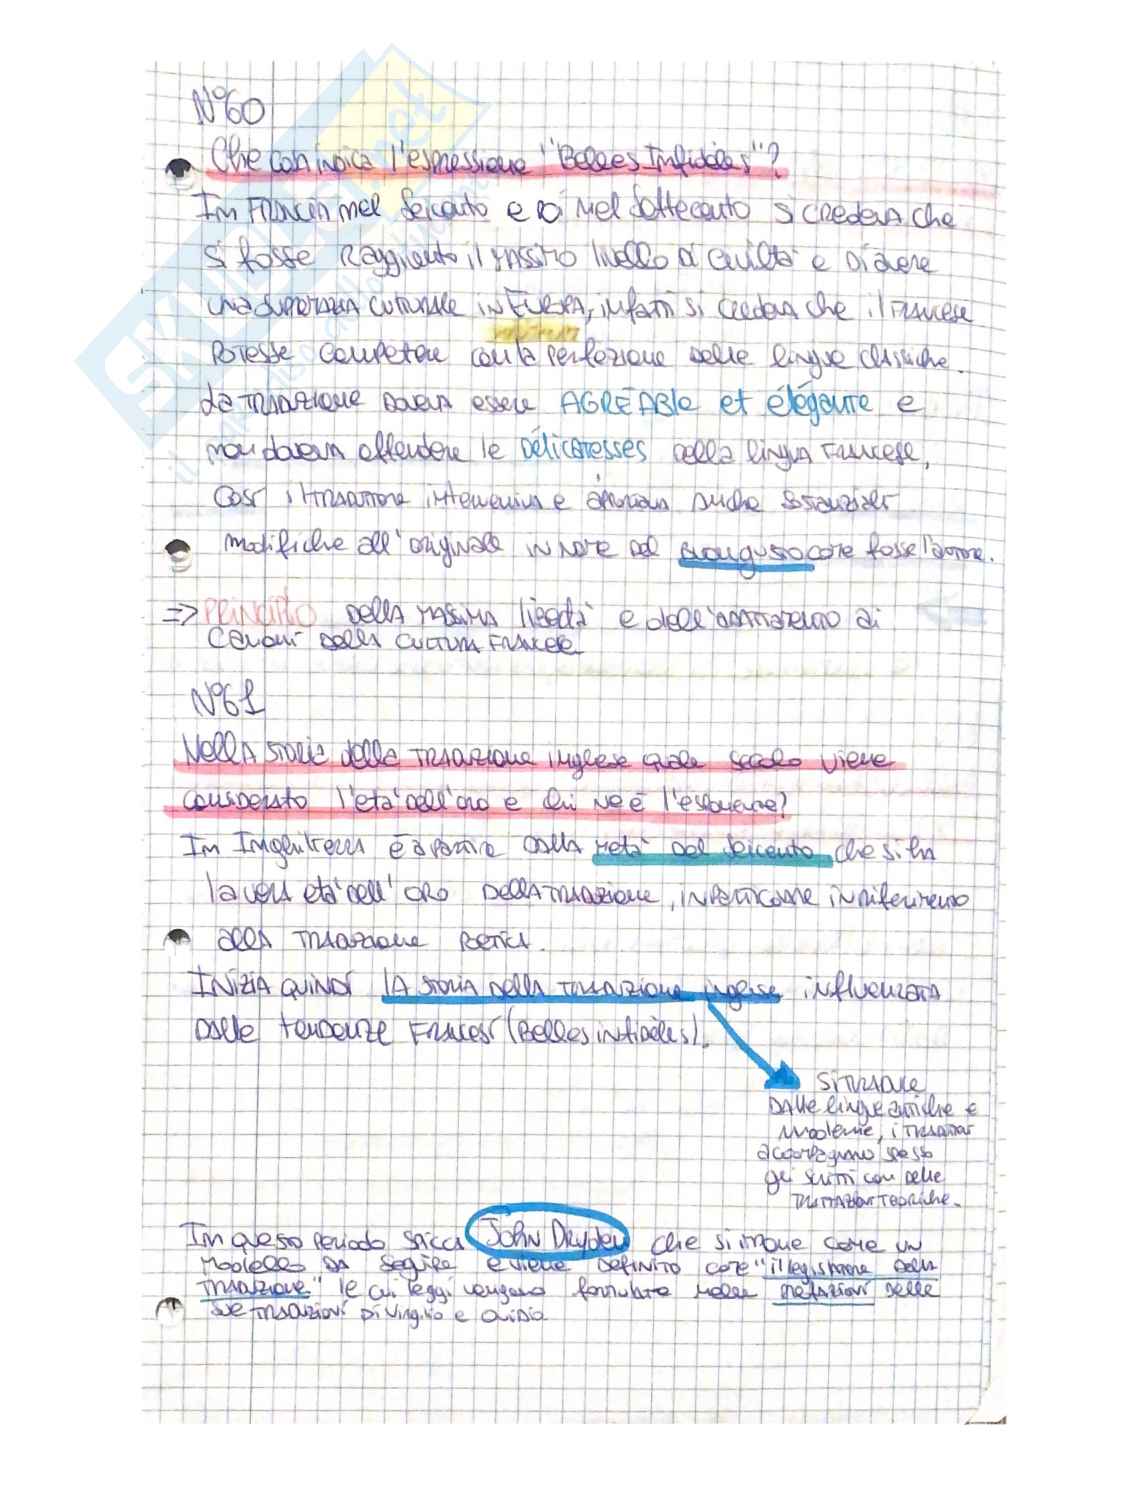 N°60
Che cosa indica l'espressione "Belles Infidèles"?
In Francia nel Seicento e poi nel Settecento si credeva che
si fosse raggiunto il massimo livello di civiltà e di avere
una superiorità culturale in EUROPA, infatti si credeva che il francese
potesse competere con la perfezione delle lingue classiche.
La traduzione doveva essere AGRÉABLE et élégante e
non doveva offendere le Délicatesses della lingua francese,
così il traduttore interveniva e apportava anche sostanziali
modifiche all'originale in nome del buongusto come fosse l'autore.
=> PRINCIPIO della massima libertà e dell'adattamento ai
canoni della cultura francese
N°61
Nella storia della traduzione inglese quale secolo viene
considerato l'età dell'oro e chi ne è l'esponente?
In Inghilterra è a partire dalla metà del Seicento che si ha
la vera età dell'oro della traduzione, in particolare in riferimento
alla traduzione poetica.
Inizia quindi la storia della traduzione inglese influenzata
dalle tendenze francesi (Belles infidèles).
Si traduce
dalle lingue antiche e
moderne, i traduttori
accompagnano spesso
gli scritti con delle
trattazioni teoriche.
In questo periodo spicca John Dryden che si impone come un
modello da seguire e viene definito come "il legislatore della
traduzione" le cui leggi vengono formulate nelle prefazioni delle
sue traduzioni di Virgilio e Ovidio
SKUOLA.net